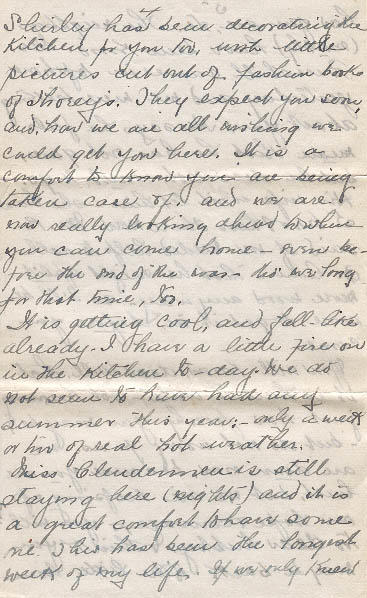 Shirley has been decorating the
Kitchen for you too, with little
pictures cut out of fashion books
of Thorey's. They expect you soon,
and how we are all wishing we
could get you here. It is a
comfort to know you are being
taken care of; and we are
now really looking ahead to when
you can come home - even be-
fore the end of the war - tho' we long
for that time, too.
It is getting cool, and fall-like
already - I have a little fire on
in the Kitchen to-day. We do
not seem to have had any
summer this year; - only a week
or two of real hot weather.
Miss Clendennen is still
staying here (nights) and it is
a great comfort to have some
one. This has been the longest
week of my life. If we only knew